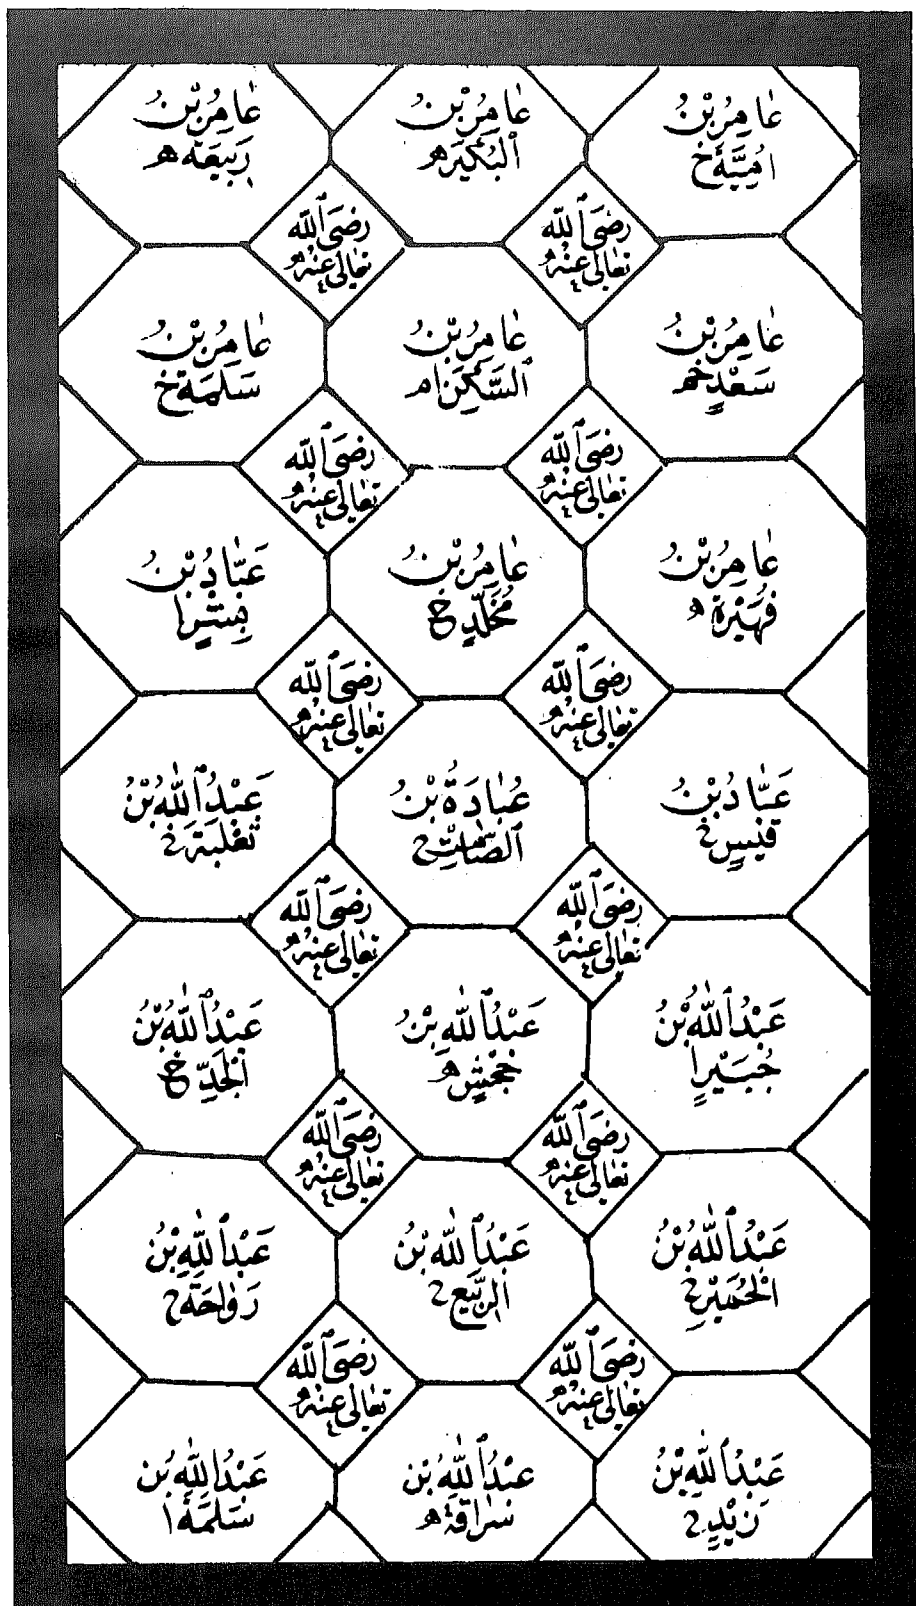 عَامِرُ بْنُ
اُمَيَّةَ خ
عَامِرُ بْنُ
الْبُكَيْرِ ه
عَامِرُ بْنُ
رَبِيعَةَ ه
رَضِيَ اللّٰهُ
تَعَالٰى عَنْهُ
رَضِيَ اللّٰهُ
تَعَالٰى عَنْهُ
عَامِرُ بْنُ
سَعْدٍ
عَامِرُ بْنُ
السَّكَنِ
عَامِرُ بْنُ
سَلَمَةَ خ
رَضِيَ اللّٰهُ
تَعَالٰى عَنْهُ
رَضِيَ اللّٰهُ
تَعَالٰى عَنْهُ
عَامِرُ بْنُ
فُهَيْرَةَ ه
عَامِرُ بْنُ
مُخَلَّدٍ خ
عَبَّادُ بْنُ
بِشْرٍ ا
رَضِيَ اللّٰهُ
تَعَالٰى عَنْهُ
رَضِيَ اللّٰهُ
تَعَالٰى عَنْهُ
عَبَّادُ بْنُ
قَيْسٍ خ
عُبَادَةُ بْنُ
الصَّامِتِ
عَبْدُ اللّٰهِ بْنُ
ثَعْلَبَةَ خ
رَضِيَ اللّٰهُ
تَعَالٰى عَنْهُ
رَضِيَ اللّٰهُ
تَعَالٰى عَنْهُ
عَبْدُ اللّٰهِ بْنُ
جُبَيْرٍ ا
عَبْدُ اللّٰهِ بْنُ
جَحْشٍ ه
عَبْدُ اللّٰهِ بْنُ
الْجَدِّ خ
رَضِيَ اللّٰهُ
تَعَالٰى عَنْهُ
رَضِيَ اللّٰهُ
تَعَالٰى عَنْهُ
عَبْدُ اللّٰهِ بْنُ
الْحُمَيِّرِ
عَبْدُ اللّٰهِ بْنُ
الرَّبِيعِ
عَبْدُ اللّٰهِ بْنُ
رَوَاحَةَ
رَضِيَ اللّٰهُ
تَعَالٰى عَنْهُ
رَضِيَ اللّٰهُ
تَعَالٰى عَنْهُ
عَبْدُ اللّٰهِ بْنُ
زَيْدٍ
عَبْدُ اللّٰهِ بْنُ
سُرَاقَةَ ه
عَبْدُ اللّٰهِ بْنُ
سَلَمَةَ ا